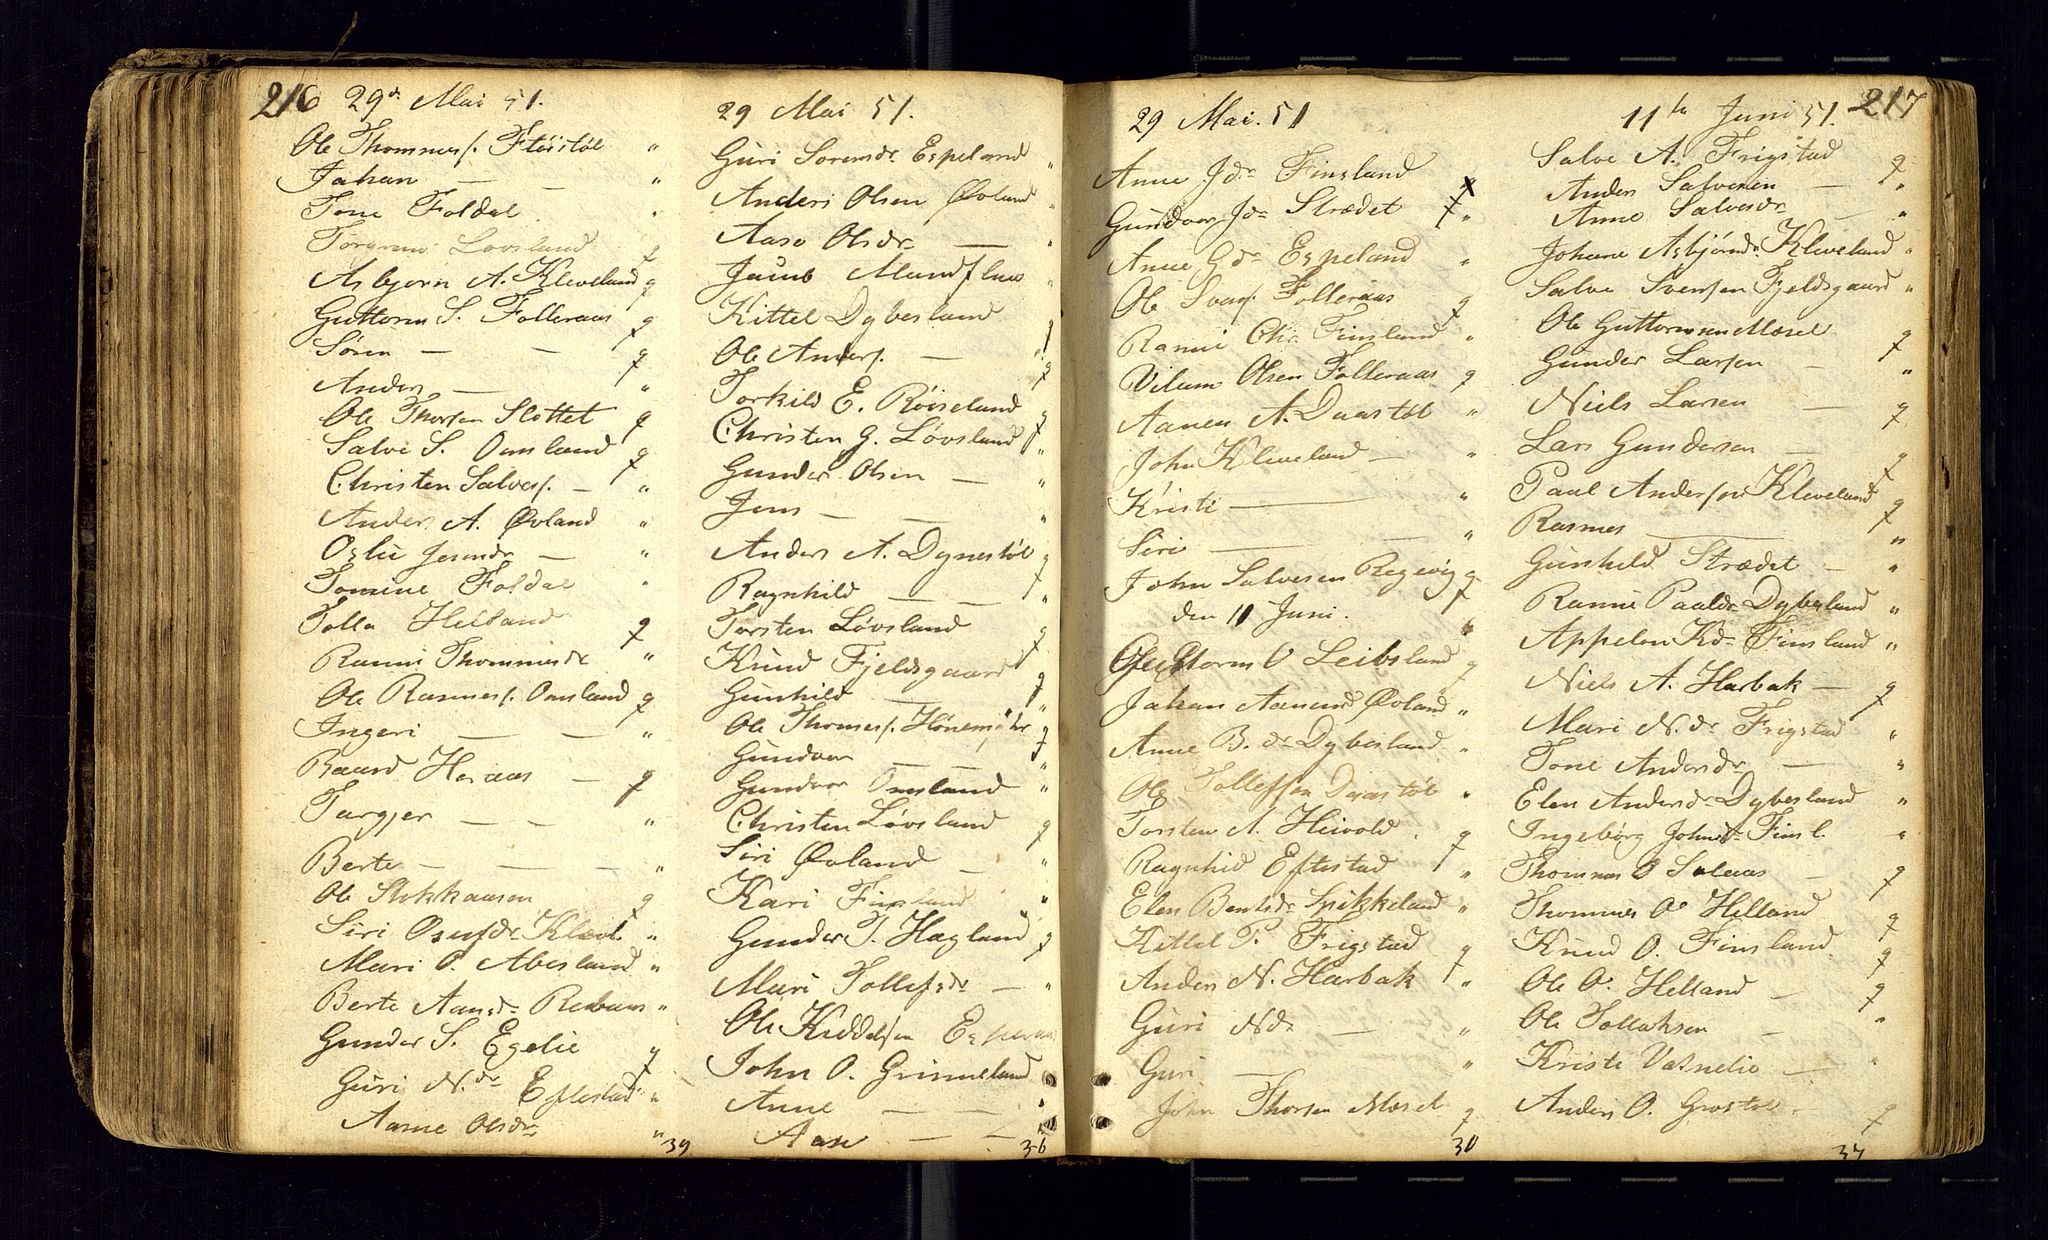 216 29de Mai 51.
Ole Thommess. Fløistøl "
Johan — — "
Tone Foldal "
Torgrim Løvsland g
Asbjørn A. Kleveland g
Guttorm S. Folleraas g
Søren — — g
Anders — "
Ole Thorsen Slottet g
Salve S. Omland g
Christen Salves. — "
Anders A. Øvland "
Oslie Jensdr — "
Tomine Foldal "
Tolla Helland g
Ranni Thommesdr "
Ole Rasmess. Omsland g
Ingeri — — "
Baard Heraas — g
Targjer — — "
Berte — — — "
Ole Stokkaasen g
Siri Osufdr Klevl. "
Mari O. Abesland "
Berte Aansdr Rebaas "
Gunder S. Egelie g
Guri N.dr Eftestad "
Aanne Olsdr "
39
29 Mai 51.
Guri Sorensdr Espeland "
Anders Olsen Øvland "
Aase Olsdr — "
Jacob Mandflaae "
Kittel Dybesland g
Ole Anders. — g
Torkild E. Røiseland g
Christen G. Løvsland g
Gunder Olsen — "
Jens — — "
Anders A. Dynestøl g
Ragnhild — — "
Torsten Løvsland g
Knud Fjeldsgaard g
Gunhild — "
Ole Thomess. Hønemyhr g
Gundvor — — "
Gundvor Omsland "
Christen Løvsland g
Siri Øvland — "
Kari Finsland "
Gunder T. Hagland g
Mari Tollefsdr — "
Ole Kiddelsen Espeland
John O. Grimeland
Anne — — "
Aase — — "
36
29 Mai. 51
Anne Jdr Finsland
Gundvor Jdr Strædet "
Anne Gdr Espeland "
Ole Svens. Folleraas g
Ranni Chr. Finsland "
Vilum Olsen Folleraas g
Aanen A. Daastøl "
John Kleveland — "
Kristi — "
Siri — — "
John Salvesen Regevig g
den 11 Juni. "
Guttorm O Leibsland g
Johan Aanensd Øvland "
Anne B.dr Dybesland "
Ole Tollefsen Daastøl "
Torsten A. Heivold g
Ragnhild Eftestad "
Elen Bentsdr Spikkeland "
Kittel P. Frigstad g
Anders N. Harbak "
Guri Ndr — "
Guri — "
John Thorsen Mosel g
30
11te Juni 51. 217
Salve A. Frigstad g
Anders Salvesen — "
Anne Salvesdr — "
Johane Asbjørnd. Kleveland "
Salve Svensen Fjeldsgaard "
Ole Guttormsen Mosel g
Gunder Larsen — "
Niels Larsen — g
Lars Gundersen — g
Paul Andersen Kleveland g
Rasmes — "
Gunhild Strædet — "
Ranni Paalsdr Dybesland "
Appelon Kdr Finsland "
Niels A. Harbak — g
Mari N.dr Frigstad "
Tone Andersdr — "
Elen Andersdr Dybesland "
Ingebørg Johnsdr Finsl. "
Thommas O Solaas — g
Thommes O. Helland g
Knud O. Finsland g
Ole O. Helland — g
Ole Tollaksen — "
Kristi Vatnelie — "
Anders O. Grostøl g
37